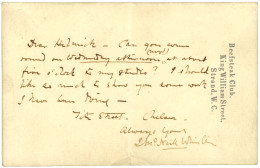 Beefsteak Club,
King William Street,
Strand, W.C.
Dear Hedrick - Can you come
(now)
round on Wednesday afternoon, at about
five o'clock to my studio? I should
like so much to show you some work
I have been doing -
Tite Street. Chelsea
Always Yours